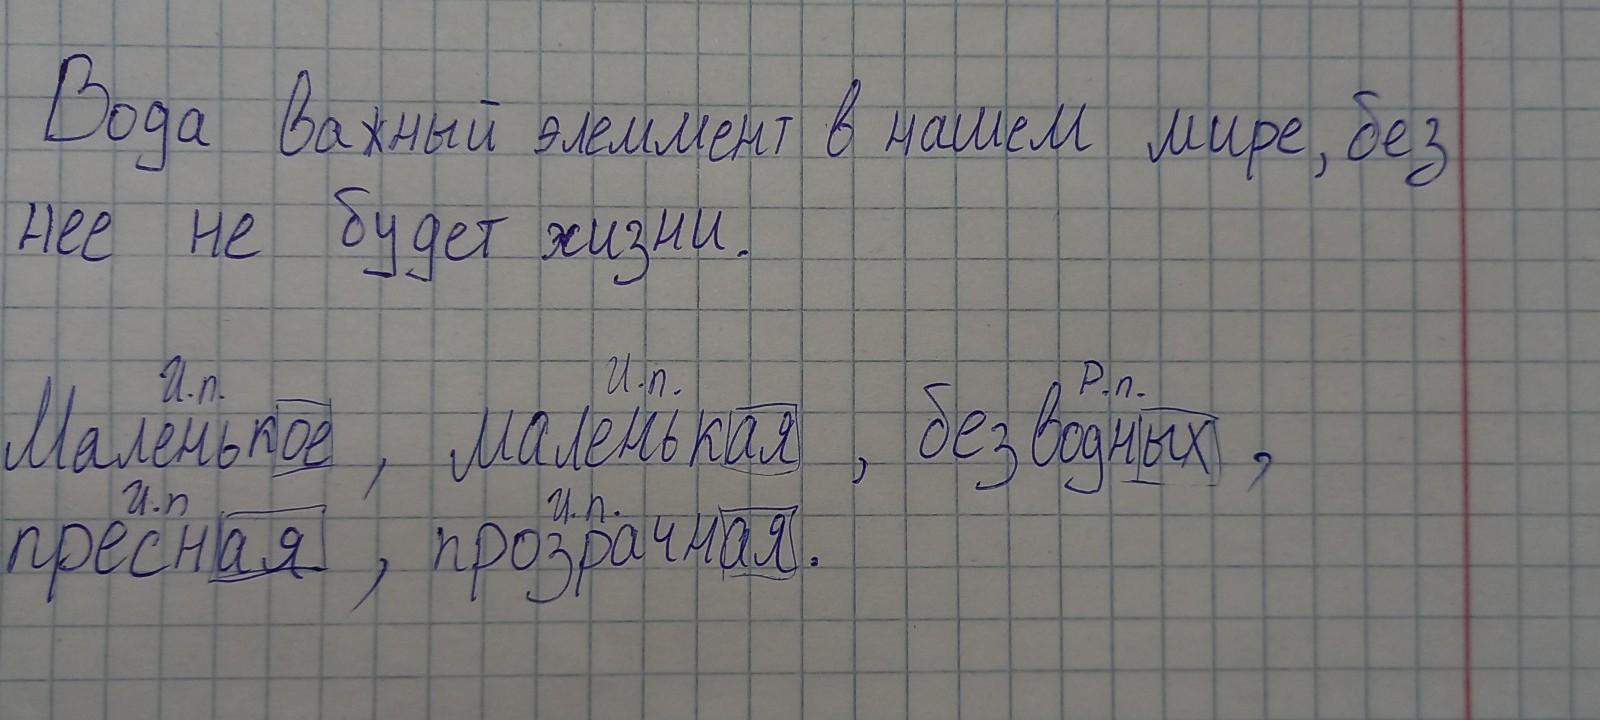 Вода важный элеммент в нашем мире, без
нее не будет жизни.
И.п. И.п. Р.п.
Маленькое, маленькая, безводных,
И.п И.п.
пресная, прозрачная.